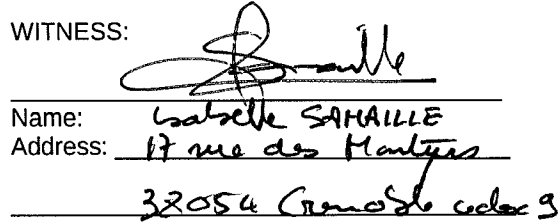 WITNESS:
Name: Isabelle SAMAILLE
Address: 17 rue des Martyrs
38054 Grenoble cedex 9